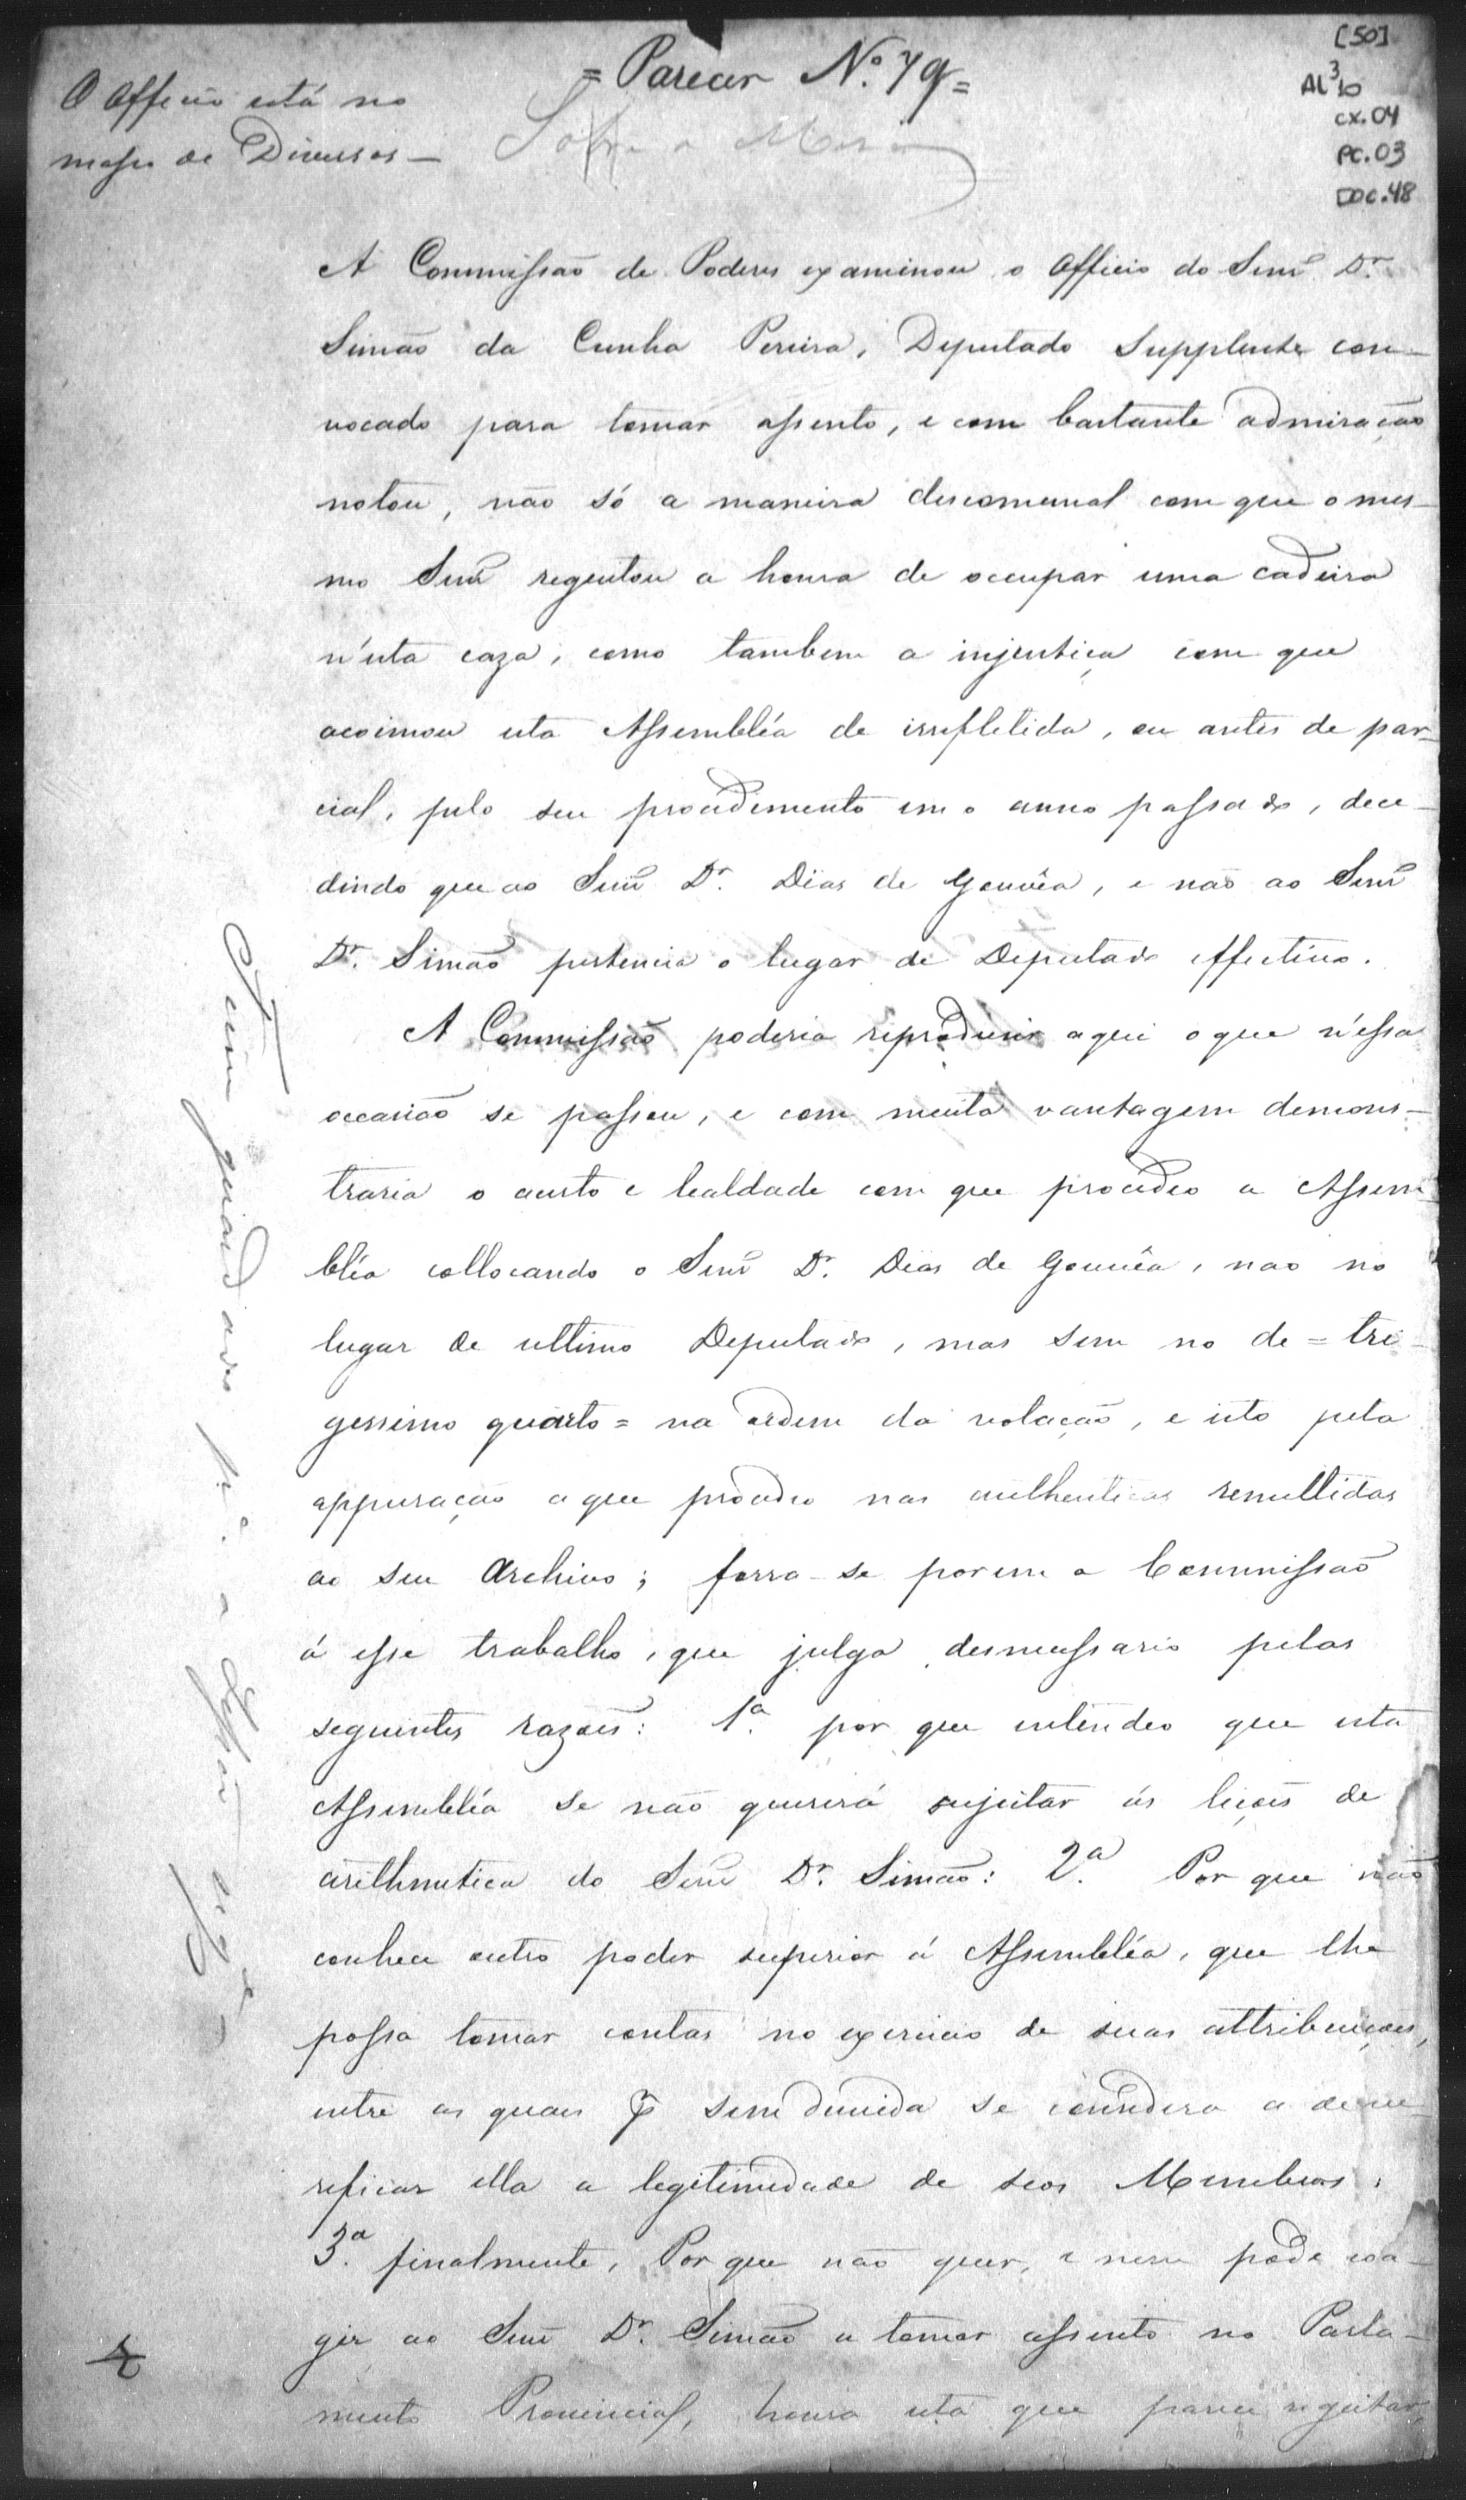 = Parecer N.º 79 =
[50]
AL³10
cx.04
PC.03
DOC.48
O Officio está no
masso de Diversos—
Sobre a Mesa
A Commissão de Poderes examinou o Officio do Senr Dr.
Simão da Cunha Pereira, Deputado Supplente con-
vocado para tomar assento, e com bastante admiração
notou, não só a maneira descomunal com que o mes-
mo Senr regeitou a honra de occupar uma cadeira
n'esta caza, como tambem a injustiça com que
acoimou esta Assembléa de irrefletida, ou antes de par-
cial, pelo seu procedimento em o anno passado, dece-
dindo que ao Senr Dr. Dias de Gouvêa, e não ao Senr
Dr. Simão pertencia o lugar de Deputado effectivo.
A Commissão poderia reproduzir aqui o que n'essa
occasião se passou, e com muita vantagem demons-
traria o acerto e lealdade com que procedeo a Assem-
bléa collocando o Senr Dr. Dias de Gouvêa, não no
lugar de ultimo Deputado, mas sem no de = tri-
gessimo quarto = na ordem da votação, e isto pela
appuração a que procedeo nas authenticas remettidas
ao seu Archivo; forra-se porem a Commissão
á esse trabalho, que julga desnecessario pelas
seguintes razoẽs: 1.ª por que entendeo que esta
Assembléa se não quererá sujeitar ás liçoẽs de
arithmetica do Senr Dr. Simão: 2.ª Por que não
conhece outro poder superior á Assembléa, que lhe
possa tomar contas no exercicio de suas attribuiçoẽs,
entre as quaes sem duvida se considera a de ve-
reficar ella a legitimidade de seos Membros:
3.ª finalmente, Por que não quer, e nem póde coa-
gir ao Senr Dr. Simão a tomar assento no Parla-
mento Provincial, honra esta que parece regeitar,